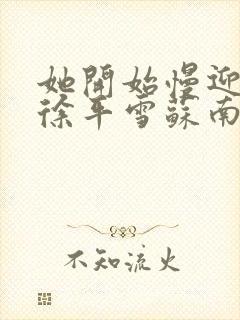 她開始慢迎
徐平雪蘇南
不知流火